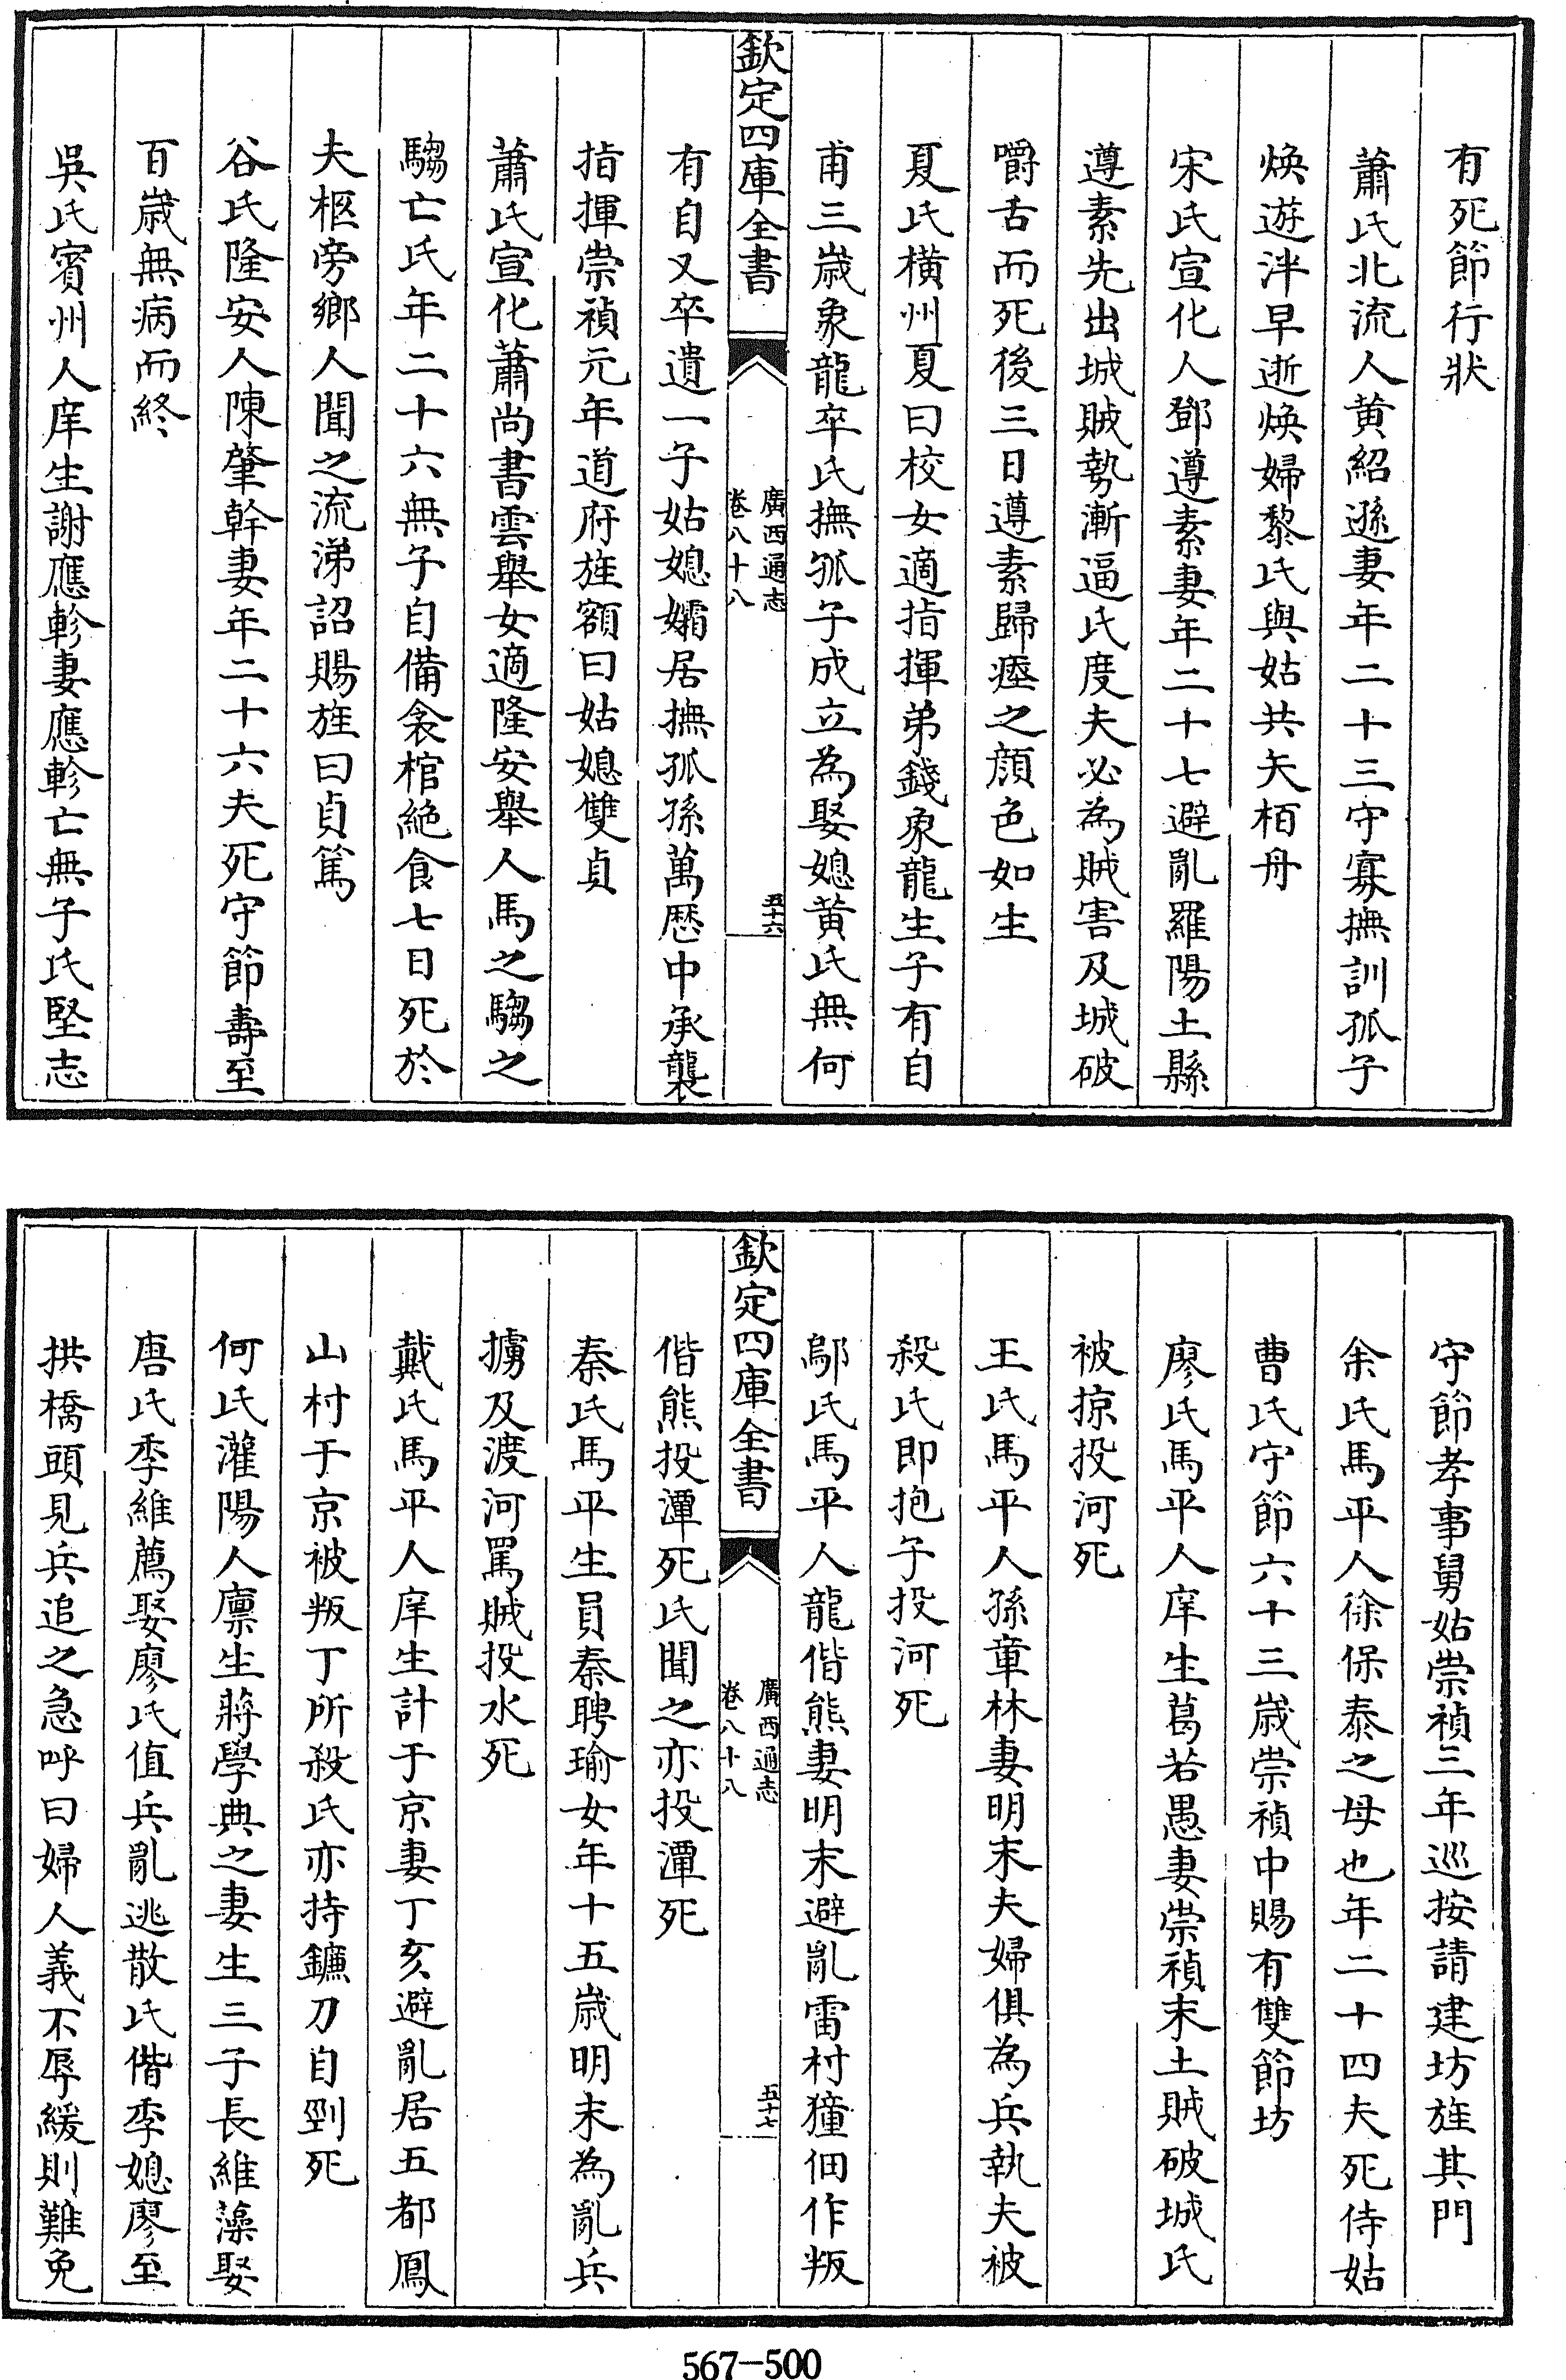 有死節行狀
蕭氏北流人黄紹遜妻年二十三守寡撫訓孤子
焕遊泮早逝焕婦黎氏與姑共矢栢舟
宋氏宣化人鄧遵素妻年二十七避亂羅陽土縣
遵素先出城賊勢漸逼氏度夫必為賊害及城破
嚼舌而死後三日遵素歸瘞之顔色如生
夏氏横州夏曰校女適指揮弟錢象龍生子有自
甫三歲象龍卒氏撫孤子成立為娶媳黄氏無何
欽定四庫全書
廣西通志
卷八十八
五十六
有自又卒遺一子姑媳孀居撫孤孫萬歷中承襲
指揮崇禎元年道府旌額曰姑媳雙貞
蕭氏宣化蕭尚書雲舉女適隆安舉人馬之騶之
騶亡氏年二十六無子自備衾棺絶食七日死於
夫柩旁鄉人聞之流涕詔賜旌曰貞篤
谷氏隆安人陳肇幹妻年二十六夫死守節壽至
百歲無病而終
吳氏賓州人庠生謝應軫妻應軫亡無子氏堅志
守節孝事舅姑崇禎三年巡按請建坊旌其門
余氏馬平人徐保泰之母也年二十四夫死侍姑
曹氏守節六十三歲崇禎中賜有雙節坊
廖氏馬平人庠生葛若愚妻崇禎末土賊破城氏
被掠投河死
王氏馬平人孫章林妻明末夫婦俱為兵執夫被
殺氏即抱子投河死
鄔氏馬平人龍偕熊妻明末避亂雷村獞佃作叛
欽定四庫全書
廣西通志
卷八十八
五十七
偕熊投潭死氏聞之亦投潭死
秦氏馬平生員秦聘瑜女年十五歲明末為亂兵
擄及渡河罵賊投水死
戴氏馬平人庠生計于京妻丁亥避亂居五都鳳
山村于京被叛丁所殺氏亦持鐮刀自剄死
何氏灌陽人廪生蔣學典之妻生三子長維藻娶
唐氏季維薦娶廖氏值兵亂逃散氏偕季媳廖至
拱橋頭見兵追之急呼曰婦人義不辱緩則難免
567-500